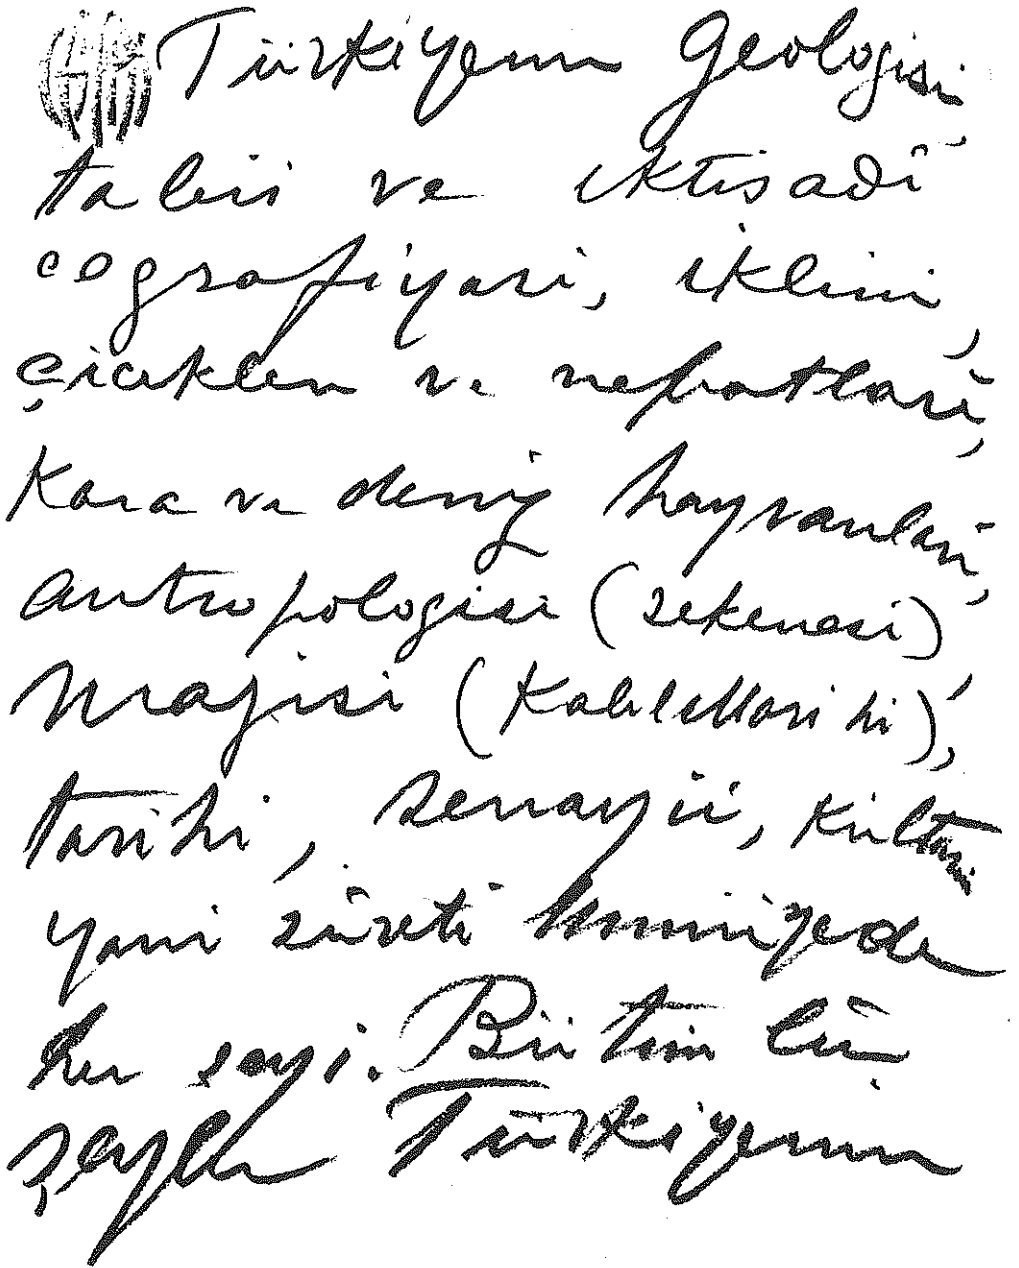 Türkiyenin Geologisi,
tabii ve iktisadî
cografiyasi, iklimi,
çicekleri ve nebatlari,
Kara ve deniz hayvanlari,
antropologisi (sekenesi)
(Kablettarihi),
tarihi, senayii, Kültürü
yani sûreti umumiyede
her seyi. Bütün bu
şeyler Türkiyenin